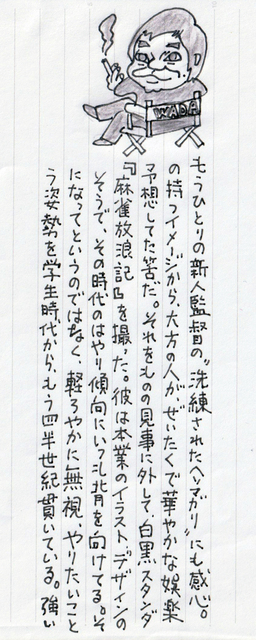 WADA
もうひとりの新人監督の〝洗練されたヘソマガリ〟にも感心。
の持つイメージから、大方の人が、ぜいたくで華やかな娯楽
予想してた筈だ。それをものの見事に外して、白黒スタンダ
『麻雀放浪記』を撮った。彼は本業のイラスト、デザインの
そうで、その時代のはやり傾向にいつも背を向けてる。そ
になってというのではなく、軽ろやかに無視、やりたいこと
う姿勢を学生時代から、もう四半世紀貫いている。強い